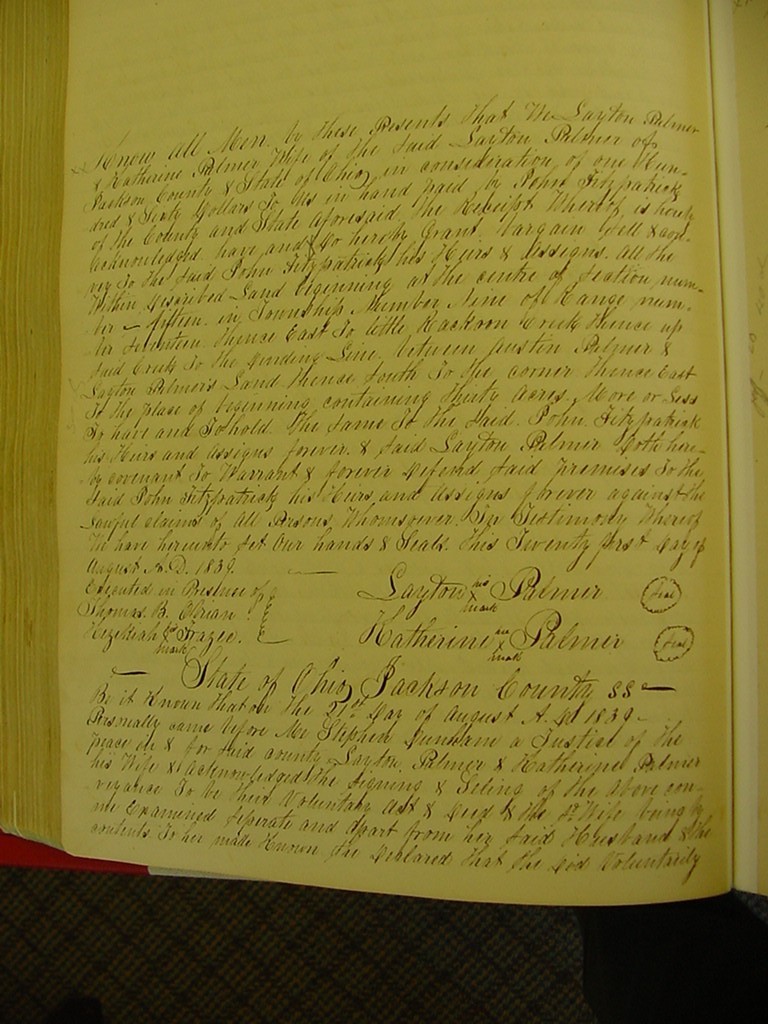 Know all Men by these Presents that We Layton Palmer
& Katherine Palmer Wife of the Said Layton Palmer of
Jackson County & State of Ohio, in consideration of one Hun-
dred & Sixty Dollars To Us in hand paid by John Fitzpatrick
of the County and State Aforesaid, the Receipt Whereof, is hereby
Acknowledged have and Do hereby Grant, Bargain Sell & con-
vey To the Said John Fitzpatrick his Heirs & Assigns. All the
Within Described Land beginning at the centre of Section num-
ber fifteen in Township Number Nine of Range num-
ber Seventeen thence East To little Rackoon Creek thence up
Said Creek To the Dividing Line between Austin Palmer &
Layton Palmer's Land thence South To the corner thence East
To the place of beginning containing Thirty Acres. More or Less
To have and To hold the Same To the Said John Fitzpatrick
his Heirs and Assigns forever & Said Layton Palmer Doth here-
by covenant To Warrant & forever Defend Said premises To the
Said John Fitzpatrick his Heirs and Assigns forever against the
Lawful claims of All Persons Whomsoever. In Testimony Whereof
We have hereunto Set Our hands & Seals. this Twenty first Day of
August A.D. 1839.
Executed in Presence of
Thomas. B.
Hezekiah his mark Frazee.
Layton his mark Palmer (Seal)
Katherine her mark Palmer (Seal)
State of Ohio, Jackson County SS
Be it Known that on the 21st Day of August A. D. 1839
Personally came before Me Stephen Dunham a Justice of the
peace in & for Said county Layton Palmer & Katherine Palmer
his Wife & Acknowledged the Signing & Sealing of the above con-
veyance To be their Voluntary Act & Deed & the sd Wife being by
me Examined Seperate and Apart from her Said Husband & the
contents To her made Known She Declared that She Did Voluntarily